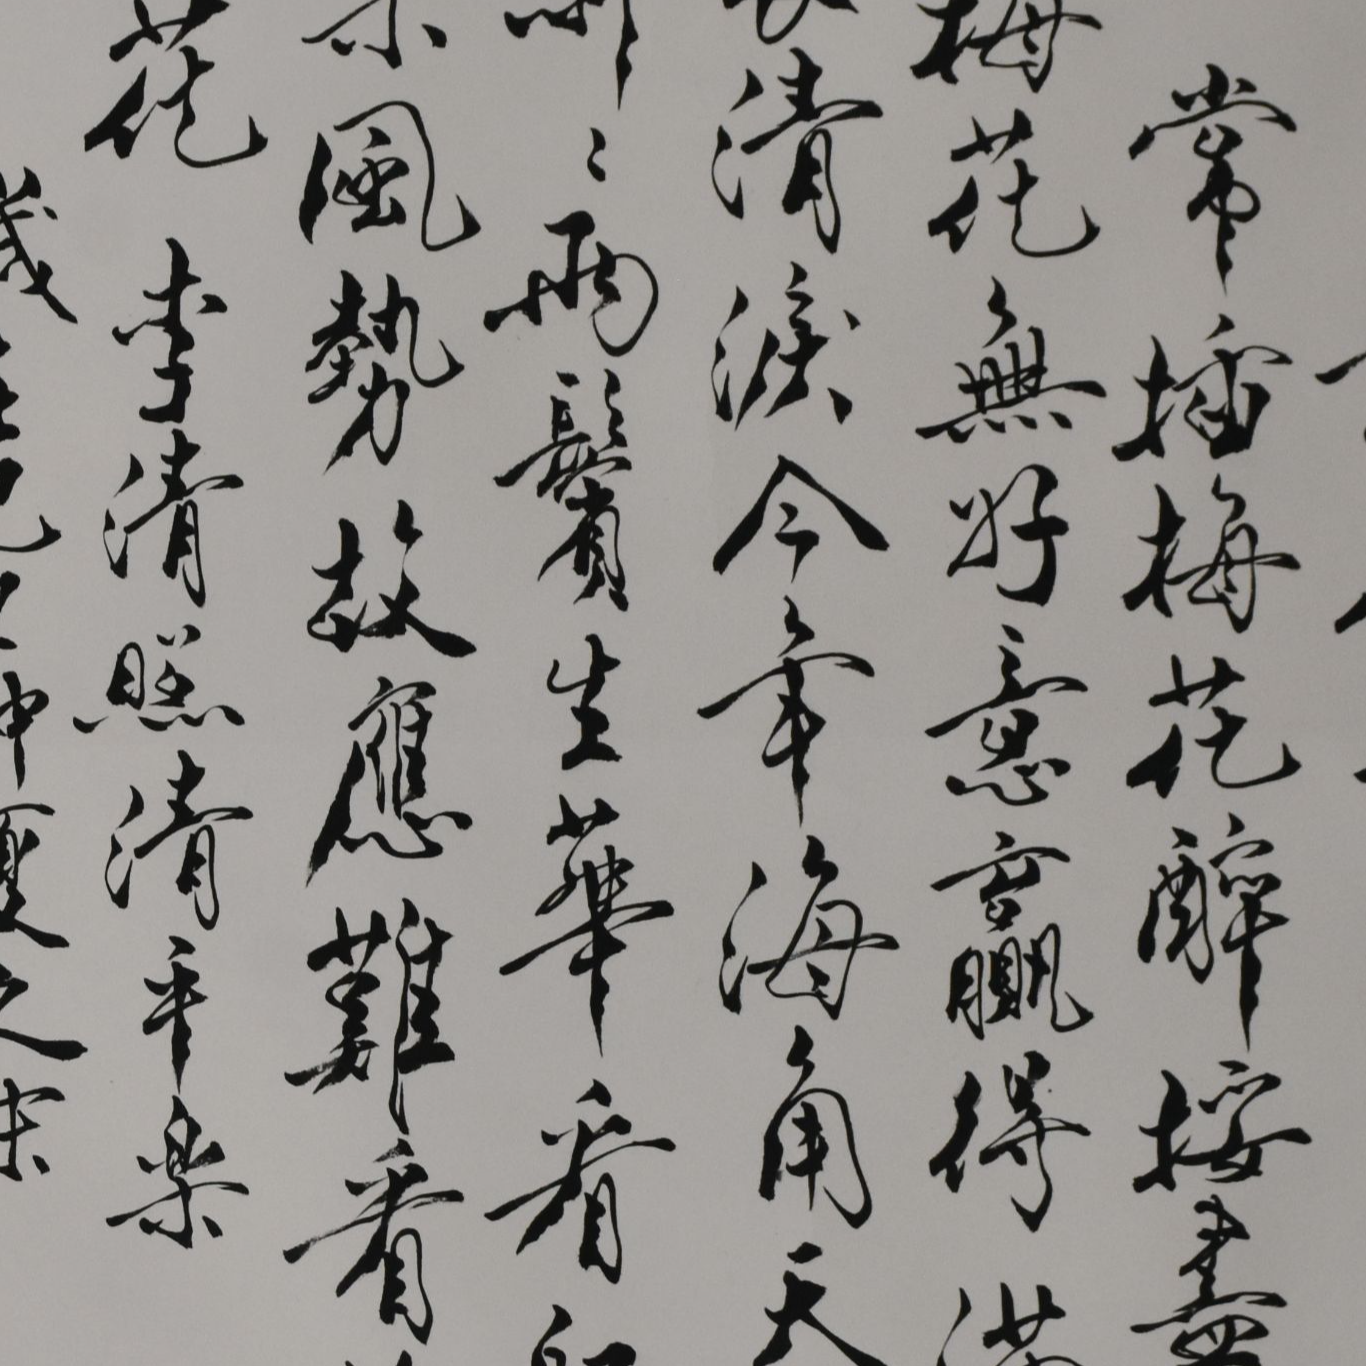 常插梅花醉挼盡
梅花無好意贏得滿
清淚今年海角天
兩鬢生華看取
風勢故應難看
花 李清照清平樂
歲 之 夏之